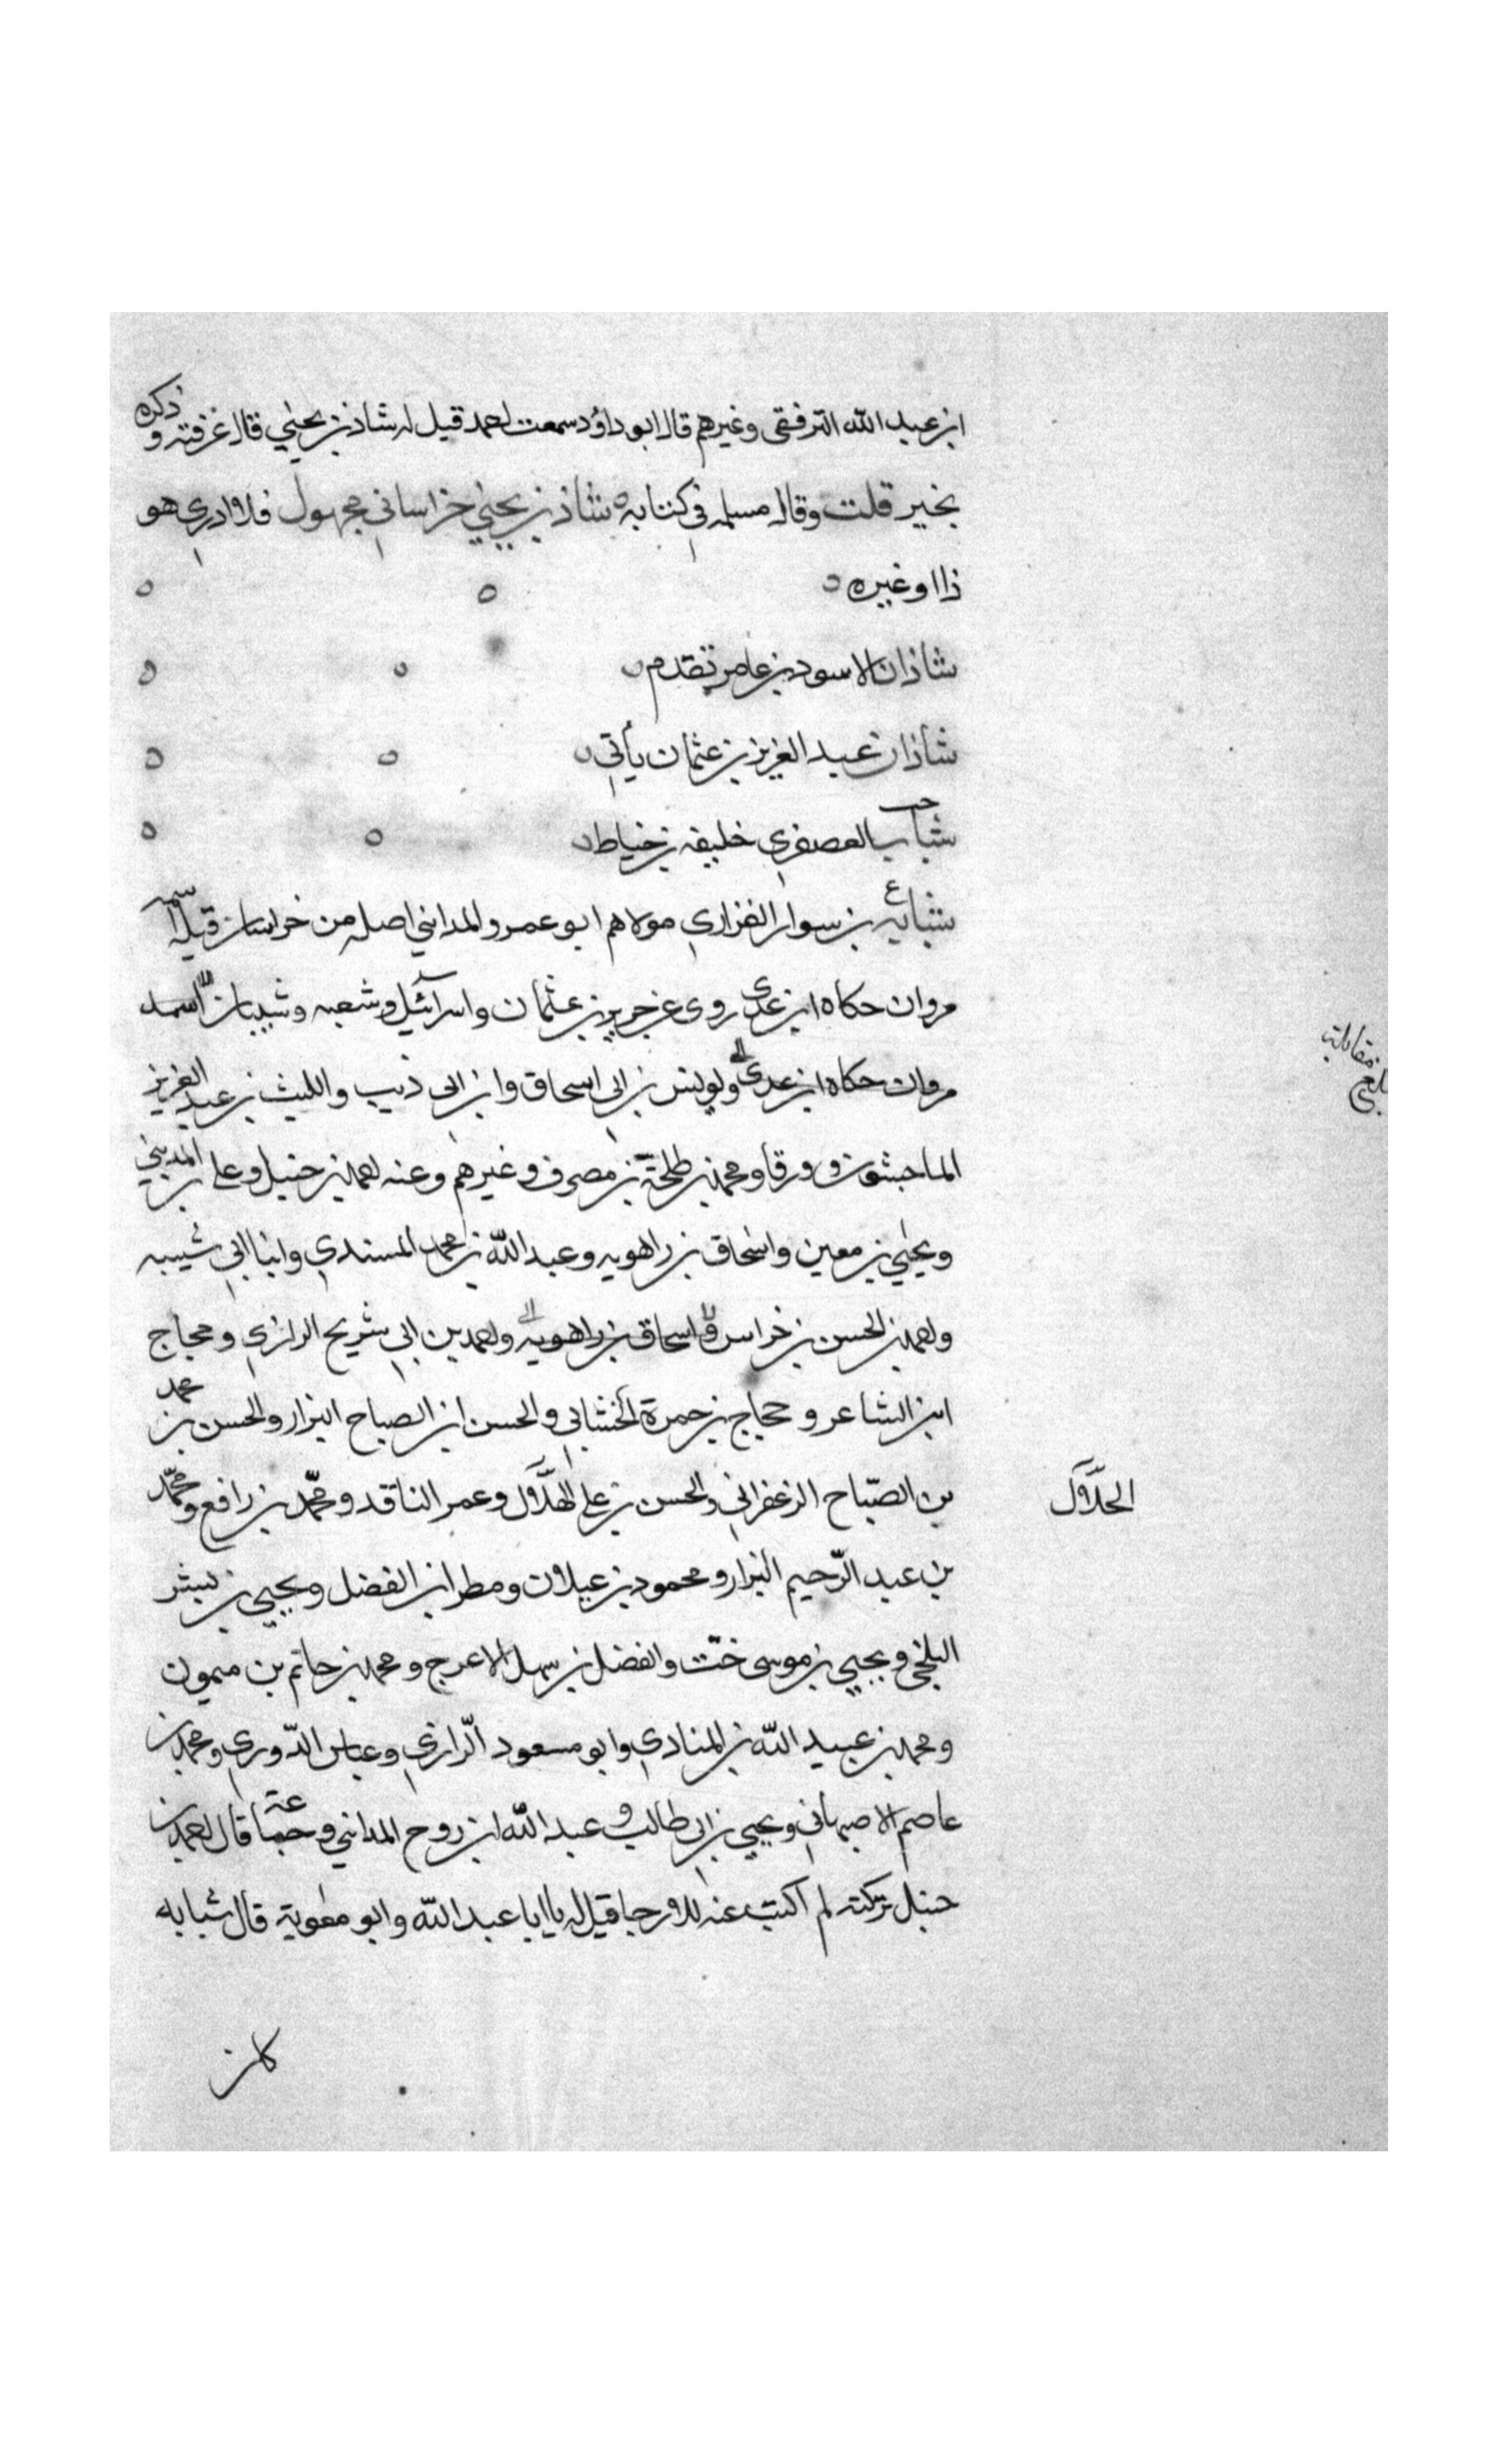 ابن عبد الله الترفقى وغيرهم قال ابو داؤد سمعت احمد قيل له شاذ بن يحيى قال عرفته وذكره
بخير قلت وقال مسلمه في كتابه شاذ بن يحيى خراساني مجهول فلا ادري هو
ذا او غيره
شاذان الاسود بن عامر تقدم
شاذان عبد العزيز بن عثمان يأتي
شباب العصفري خليفه بن خياط
شبابه بن سوار الفزاري مولاهم ابو عمرو المدايني اصله من خراسان قيل اسمه
مروان حكاه ابن عدى روى عن حريز بن عثمان واسرآئيل وشعبه وشيبان اسمه
مروان حكاه ابن عدى ويونس بن ابى اسحاق وابن ابى ذيب والليث بن عبد العزيز
الماجشون وورقا ومحمد بن طلحة بن مصرف وغيرهم وعنه احمد بن حنبل وعلى بن المديني
ويحيى بن معين واسحاق بن راهويه وعبد الله بن محمد المسندي وابنا ابي شيبه
واحمد بن الحسن بن خراس واسحاق بن راهويه واحمد بن ابي شريح الرازي وحجاج
ابن الشاعر وحجاج بن حمزة الخشابي والحسن ابن الصباح البزار والحسن بن محمد
بن الصّباح الزعفراني والحسن بن على الهلّال وعمر الناقد ومحمّد بن رافع ومحمّد
الحلّال
بن عبد الرّحيم البزار ومحمود بن غيلان ومطر ابن الفضل ويحيى بن بشر
البلخي ويحيى بن موسى ختّ والفضل بن سهل الاعرج ومحمد بن حاتم بن ميمون
ومحمد بن عبيد الله بن المنادي وابو مسعود الرّازي وعباس الدّوري ومحمد بن
عاصم الاصبهاني ويحيى بن ابى طالب وعبد الله ابن روح المدايني وجماعة قال احمد بن
حنبل تركته لم اكتب عنه للارجا قيل له يا ابا عبد الله وابو معوية قال شبابه
كان
بلغ مقابلة